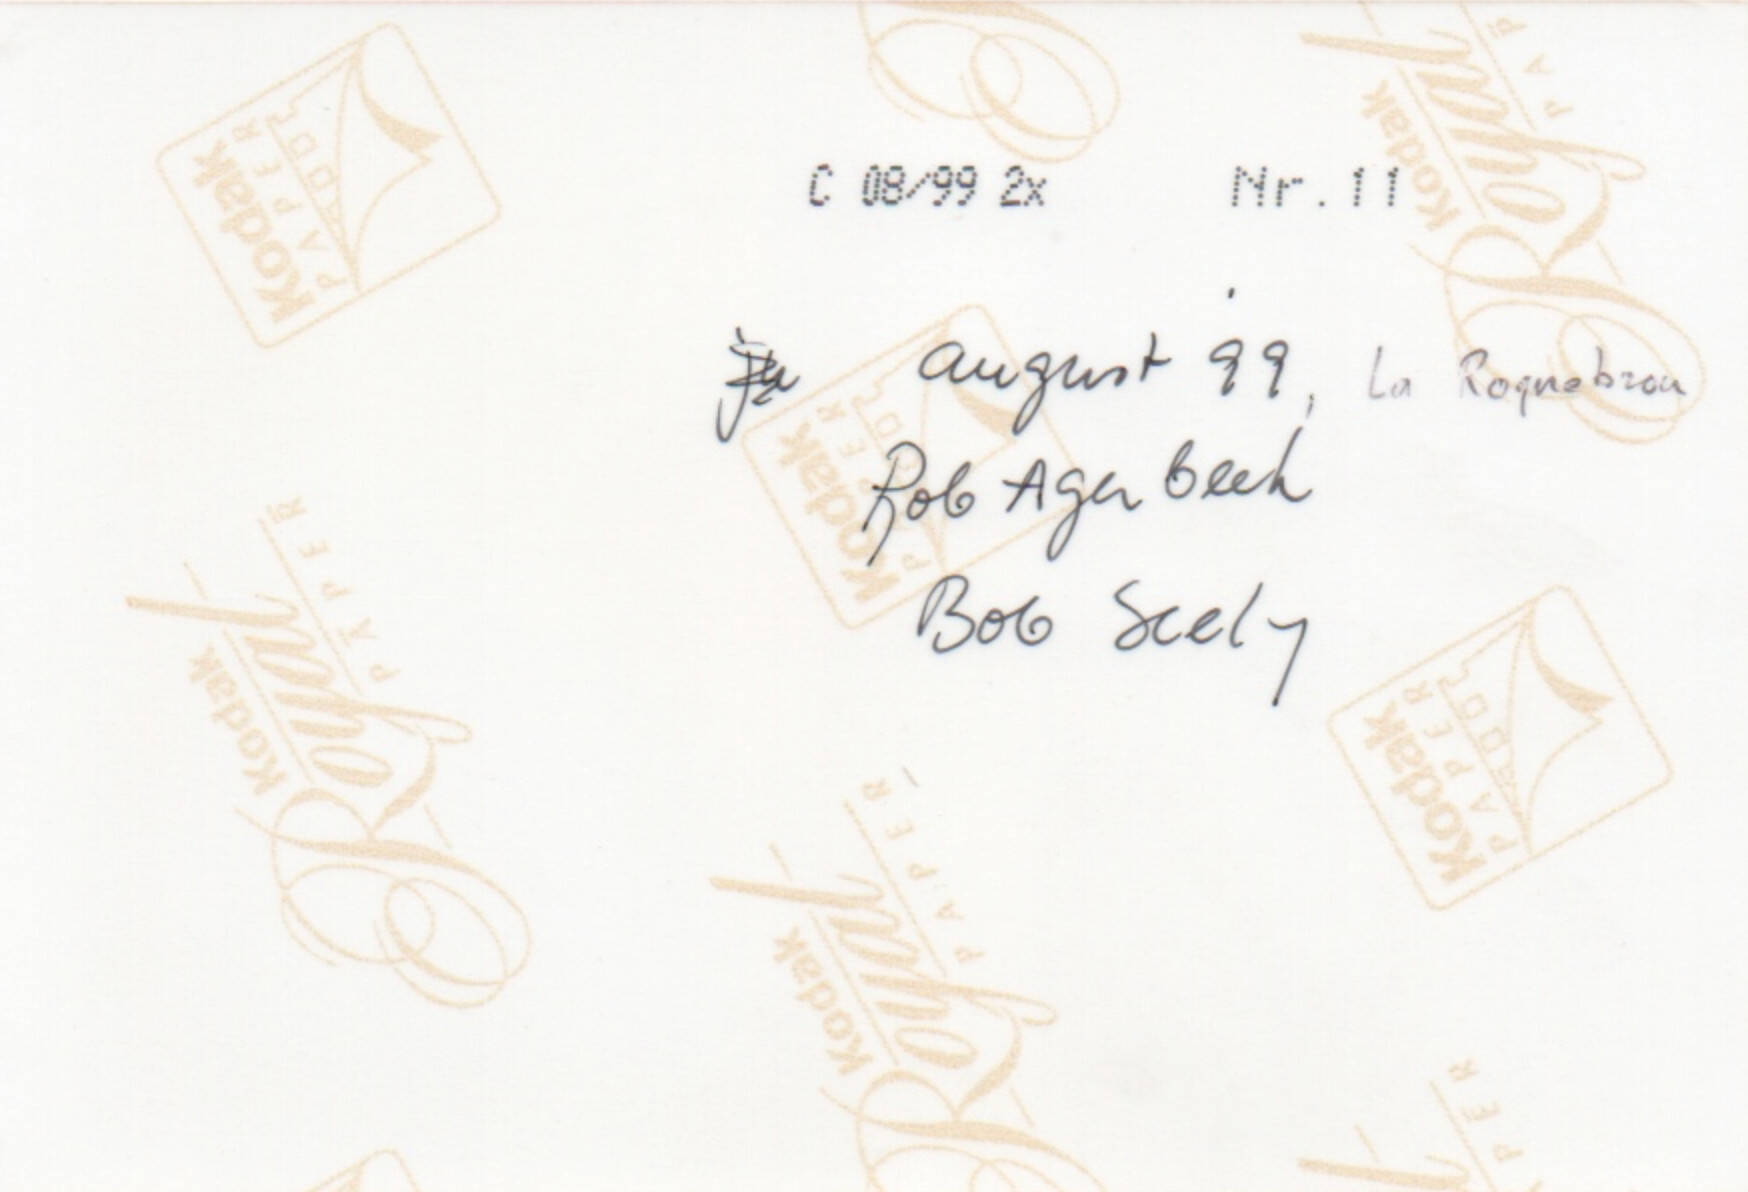 C 08/99 2x Nr.11
august 99, La Roquebrou
Rob Agerbeek
Bob Seely
Kodak
PAPER
Kodak
Royal
PAPER
Kodak
PAPER
Kodak
Royal
PAPER
Kodak
Royal
PAPER
Kodak
PAPER